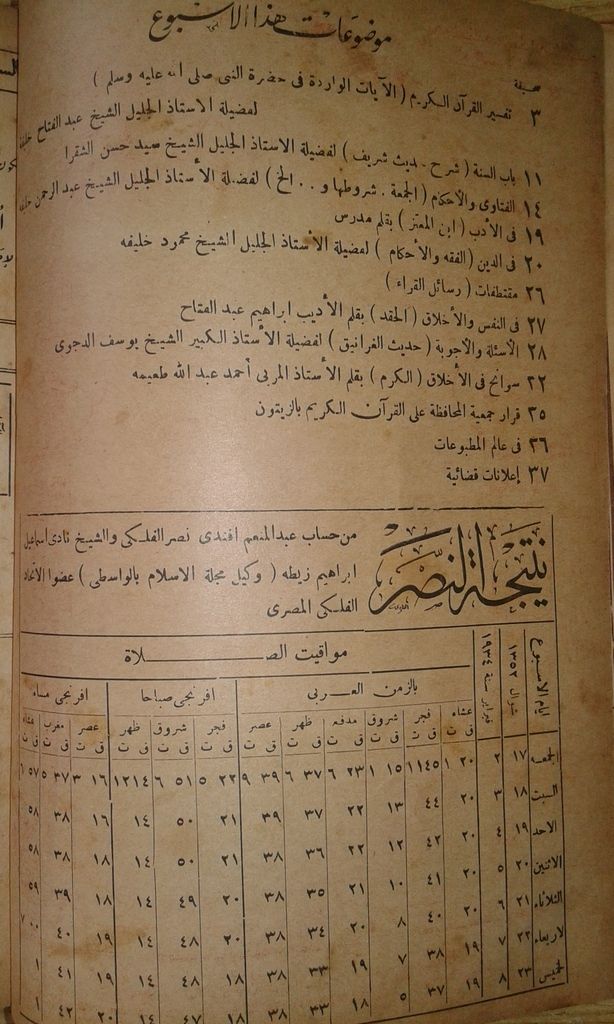 موضوعات هذا الاسبوع
صحيفة
٣ تفسير القرآن الكريم ( الآيات الواردة فى حضرة النبى صلى الله عليه وسلم )
لفضيلة الاستاذ الجليل الشيخ عبد الفتاح
١١ باب السنة ( شرح حديث شريف ) لفضيلة الاستاذ الجليل الشيخ سيد حسن الشقرا
١٤ الفتاوى والأحكام ( الجمعة . شروطها و . . الخ ) لفضيلة الأستاذ الجليل الشيخ عبد الرحمن
١٩ فى الأدب ( ابن المعتز ) بقلم مدرس
٢٠ فى الدين ( الفقه والأحكام ) لفضيلة الأستاذ الجليل الشيخ محمود خليفه
٢٦ مقتطفات ( رسائل القراء )
٢٧ فى النفس والأخلاق ( الحقد ) بقلم الأديب ابراهيم عبد الفتاح
٢٨ الأسئلة والأجوبة ( حديث الغرانيق ) لفضيلة الأستاذ الكبير الشيخ يوسف الدجوى
٢٢ سوانح فى الأخلاق ( الكرم ) بقلم الأستاذ المربى أحمد عبد الله طعيمه
٣٥ قرار جمعية المحافظة على القرآن الكريم بالزيتون
٣٦ فى عالم المطبوعات
٣٧ إعلانات قضائية
نتيجة النصر
من حساب عبدالمنعم افندى نصر الفلكى والشيخ نادى اسماعيل
ابراهيم زبطه ( وكيل مجلة الاسلام بالواسطى ) عضوا الاتحاد
الفلكى المصرى
ايام الاسبوع شوال ١٣٥٢ فبراير سنة ١٩٣٤ مواقيت الصلاة
بالزمن العربى افرنجى صباحا افرنجى مساء
عشاء فجر شروق مدفعه ظهر عصر فجر شروق ظهر عصر مغرب عشاء
ق ت ق ت ق ت ق ت ق ت ق ت ق ت ق ت ق ت ق ت ق ت ق ت
الجمعه ١٧ ٢ ٢٠ ١ ٤٥ ١١ ١٥ ١ ٢٣ ٦ ٣٧ ٦ ٣٩ ٩ ٢٢ ٥ ٥١ ٦ ١٤ ١٢ ١٦ ٣ ٣٧ ٥ ٥٧
السبت ١٨ ٣ ٢٠ ٤٤ ١٣ ٢٢ ٣٧ ٣٩ ٢١ ٥٠ ١٤ ١٦ ٣٨ ٥٨
الاحد ١٩ ٤ ٢٠ ٤٢ ١٢ ٢٢ ٣٦ ٣٨ ٢١ ٥٠ ١٤ ١٨ ٣٨ ٥٨
الاثنين ٢٠ ٥ ٢٠ ٤١ ١٠ ٢١ ٣٥ ٣٨ ٢٠ ٤٩ ١٤ ١٨ ٣٩ ٥٩
الثلاثاء ٢١ ٦ ٢٠ ٤٠ ٨ ٢٠ ٣٤ ٣٨ ٢٠ ٤٨ ١٤ ١٩ ٤٠ ٧٠٠
لاربعاء ٢٢ ٧ ١٩ ٣٨ ٧ ١٩ ٣٣ ٣٨ ١٨ ٤٨ ١٤ ١٩ ٤١ ١
الخميس ٢٣ ٨ ١٩ ٣٧ ٥ ١٨ ٣٣ ٣٨ ١٨ ٤٧ ١٤ ٢٠ ٤٢ ١